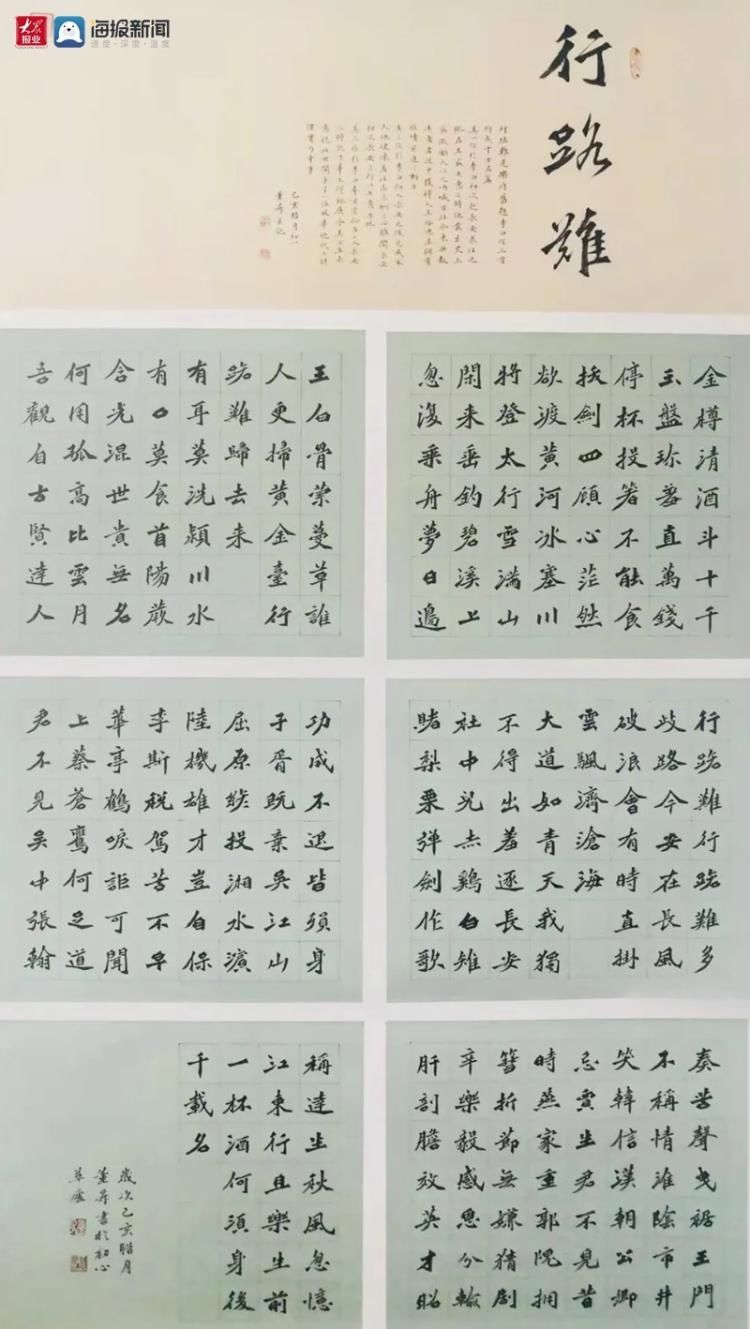 大众报业
海报新闻
速度·深度·温度
行路難
行路難是樂府舊題李白作三首
己亥臘月初一
金樽清酒斗十千
玉盤珍羞直萬錢
停杯投箸不能食
拔劍四顧心茫然
欲渡黄河冰塞川
將登太行雪滿山
閑来垂釣碧溪上
忽復乘舟夢日邊
行路難行路難多
歧路今安在長風
破浪會有時直掛
雲颿濟滄海
大道如青天我獨
不得出羞逐長安
社中兒赤鷄白雉
賭梨栗弹劍作歌
奏苦聲曳裾王門
不稱情淮陰市井
笑韓信漢朝公卿
忌賈生君不見昔
時燕家重郭隗擁
篲折節無嫌猜劇
辛樂毅感恩分輸
肝剖膽效英才昭
王白骨縈蔓草誰
人更掃黄金臺行
路難歸去来
有耳莫洗潁川水
有口莫食首陽蕨
含光混世貴無名
何用孤高比雲月
吾觀自古賢達人
功成不退皆殞身
子胥既棄吳江山
屈原終投湘水濱
陸機雄才豈自保
李斯稅駕苦不早
華亭鶴唳詎可聞
上蔡蒼鷹何足道
君不見吳中張翰
稱達生秋風忽憶
江東行且樂生前
一杯酒何須身後
千載名
歲次己亥臘月
書於初心